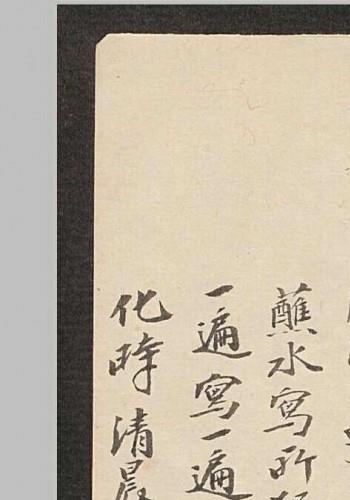 蘸水寫所
一遍寫一遍
化時清晨